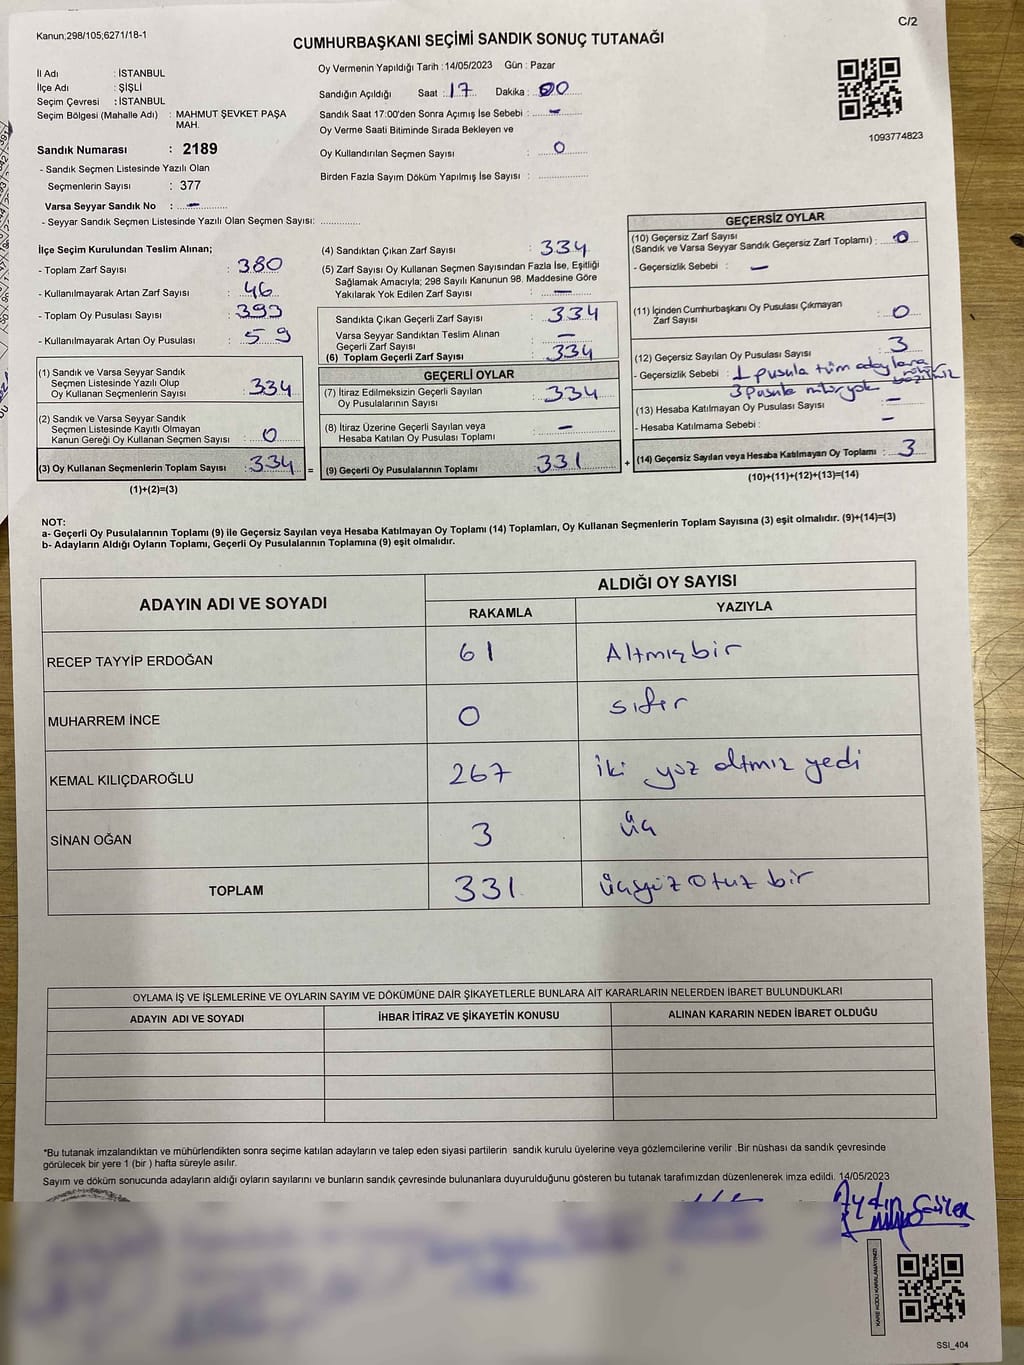 Kanun;298/105;6271/18-1
C/2
CUMHURBAŞKANI SEÇİMİ SANDIK SONUÇ TUTANAĞI
İl Adı : İSTANBUL
İlçe Adı : ŞİŞLİ
Seçim Çevresi : İSTANBUL
Seçim Bölgesi (Mahalle Adı) : MAHMUT ŞEVKET PAŞA
MAH.
Sandık Numarası : 2189
- Sandık Seçmen Listesinde Yazılı Olan
Seçmenlerin Sayısı : 377
Varsa Seyyar Sandık No : -
- Seyyar Sandık Seçmen Listesinde Yazılı Olan Seçmen Sayısı: ..............
Oy Vermenin Yapıldığı Tarih :14/05/2023 Gün : Pazar
Sandığın Açıldığı Saat : 17 Dakika : 00
Sandık Saat 17:00'den Sonra Açımış İse Sebebi : -
Oy Verme Saati Bitiminde Sırada Bekleyen ve
Oy Kullandırılan Seçmen Sayısı : 0
Birden Fazla Sayım Döküm Yapılmış İse Sayısı : ..............
1093774823
İlçe Seçim Kurulundan Teslim Alınan;
- Toplam Zarf Sayısı : 380
- Kullanılmayarak Artan Zarf Sayısı : 46
- Toplam Oy Pusulası Sayısı : 393
- Kullanılmayarak Artan Oy Pusulası : 59
(1) Sandık ve Varsa Seyyar Sandık
Seçmen Listesinde Yazılı Olup
Oy Kullanan Seçmenlerin Sayısı : 334
(2) Sandık ve Varsa Seyyar Sandık
Seçmen Listesinde Kayıtlı Olmayan
Kanun Gereği Oy Kullanan Seçmen Sayısı : 0
(3) Oy Kullanan Seçmenlerin Toplam Sayısı : 334 =
(1)+(2)=(3)
(4) Sandıktan Çıkan Zarf Sayısı : 334
(5) Zarf Sayısı Oy Kullanan Seçmen Sayısından Fazla İse, Eşitliği
Sağlamak Amacıyla; 298 Sayılı Kanunun 98. Maddesine Göre
Yakılarak Yok Edilen Zarf Sayısı : -
Sandıkta Çıkan Geçerli Zarf Sayısı : 334
Varsa Seyyar Sandıktan Teslim Alınan
Geçerli Zarf Sayısı : -
(6) Toplam Geçerli Zarf Sayısı : 334
GEÇERLİ OYLAR
(7) İtiraz Edilmeksizin Geçerli Sayılan
Oy Pusulalarının Sayısı : 334
(8) İtiraz Üzerine Geçerli Sayılan veya
Hesaba Katılan Oy Pusulası Toplamı : -
(9) Geçerli Oy Pusulalarının Toplamı : 331 +
GEÇERSİZ OYLAR
(10) Geçersiz Zarf Sayısı
(Sandık ve Varsa Seyyar Sandık Geçersiz Zarf Toplamı) : 0
- Geçersizlik Sebebi : -
(11) İçinden Cumhurbaşkanı Oy Pusulası Çıkmayan
Zarf Sayısı : 0
(12) Geçersiz Sayılan Oy Pusulası Sayısı : 3
- Geçersizlik Sebebi : 1 pusula tüm adaylara
3 pusula mühür yok
(13) Hesaba Katılmayan Oy Pusulası Sayısı : -
- Hesaba Katılmama Sebebi : -
(14) Geçersiz Sayılan veya Hesaba Katılmayan Oy Toplamı : 3
(10)+(11)+(12)+(13)=(14)
NOT:
a- Geçerli Oy Pusulalarının Toplamı (9) ile Geçersiz Sayılan veya Hesaba Katılmayan Oy Toplamı (14) Toplamları, Oy Kullanan Seçmenlerin Toplam Sayısına (3) eşit olmalıdır. (9)+(14)=(3)
b- Adayların Aldığı Oyların Toplamı, Geçerli Oy Pusulalarının Toplamına (9) eşit olmalıdır.
ADAYIN ADI VE SOYADI ALDIĞI OY SAYISI
RAKAMLA YAZIYLA
RECEP TAYYİP ERDOĞAN 61 Altmışbir
MUHARREM İNCE 0 sıfır
KEMAL KILIÇDAROĞLU 267 iki yüz altmız yedi
SİNAN OĞAN 3 üç
TOPLAM 331 üçyüz otuz bir
OYLAMA İŞ VE İŞLEMLERİNE VE OYLARIN SAYIM VE DÖKÜMÜNE DAİR ŞİKAYETLERLE BUNLARA AİT KARARLARIN NELERDEN İBARET BULUNDUKLARI
ADAYIN ADI VE SOYADI İHBAR İTİRAZ VE ŞİKAYETİN KONUSU ALINAN KARARIN NEDEN İBARET OLDUĞU
*Bu tutanak imzalandıktan ve mühürlendikten sonra seçime katılan adayların ve talep eden siyasi partilerin sandık kurulu üyelerine veya gözlemcilerine verilir .Bir nüshası da sandık çevresinde
görülecek bir yere 1 (bir ) hafta süreyle asılır.
Sayım ve döküm sonucunda adayların aldığı oyların sayılarını ve bunların sandık çevresinde bulunanlara duyurulduğunu gösteren bu tutanak tarafımızdan düzenlenerek imza edildi. 14/05/2023
Aydın
KARE KODU KARALAMAYINIZ!
SSI_404